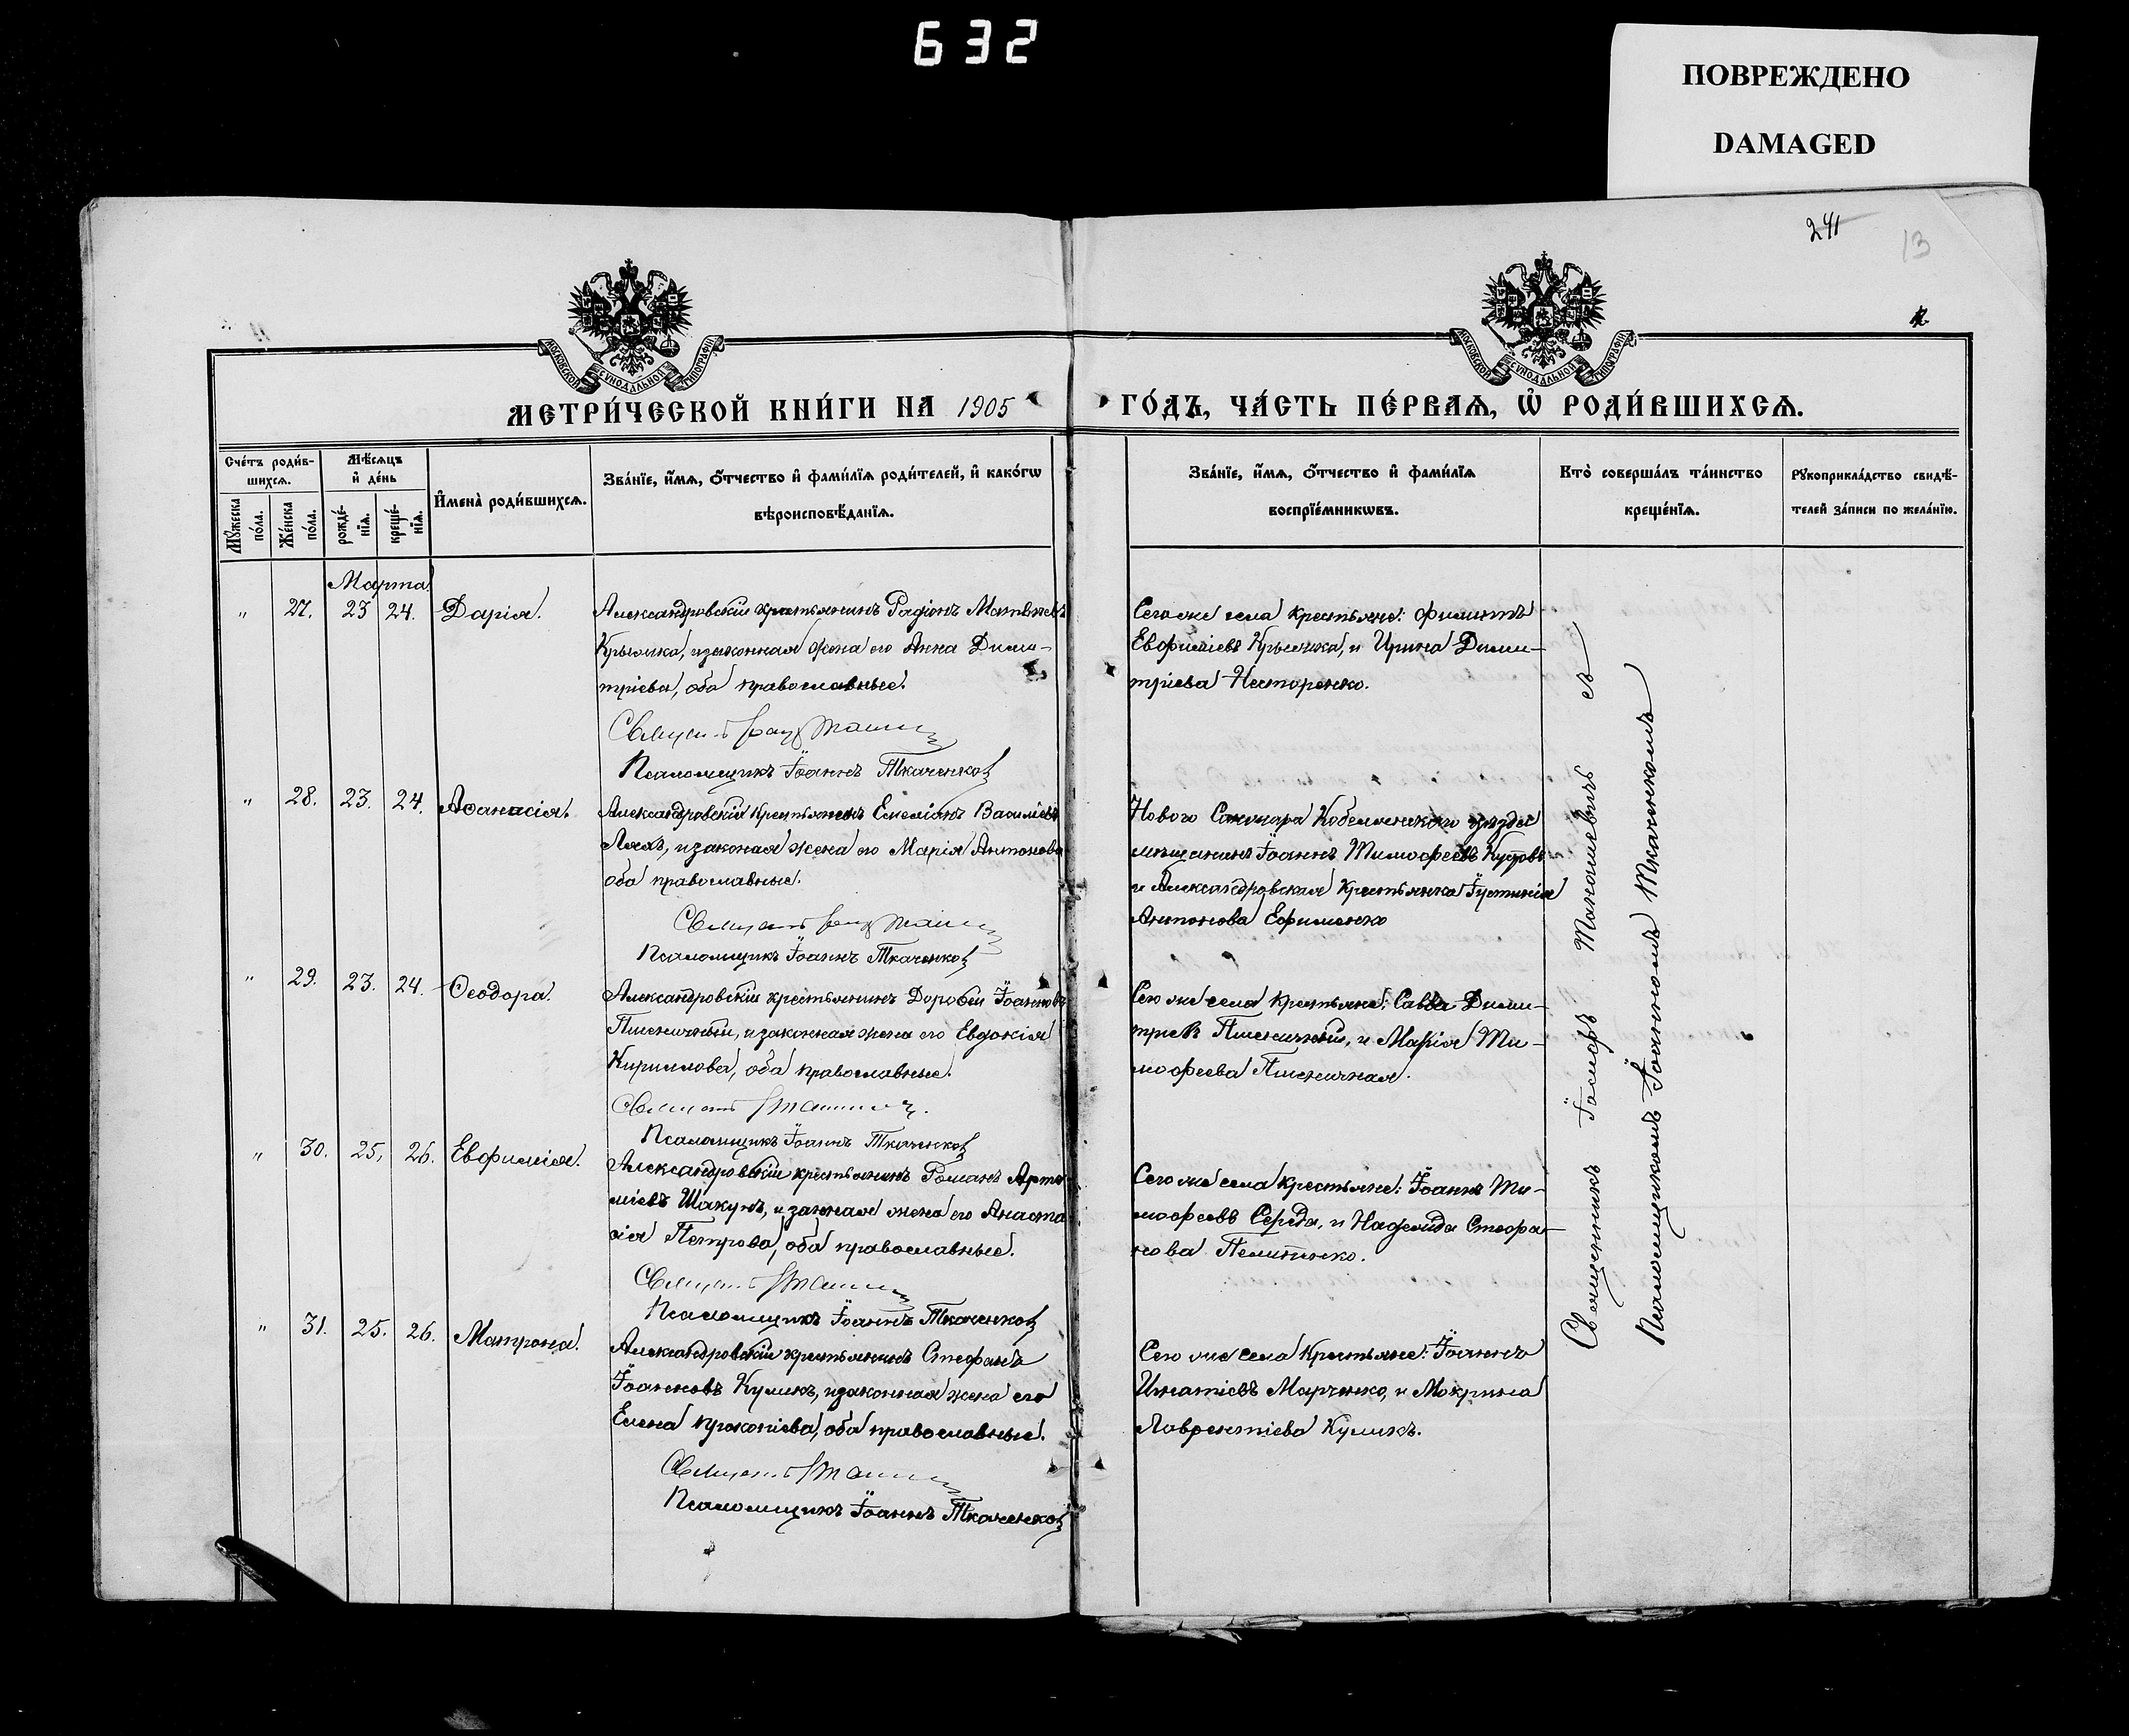 632
ПОВРЕЖДЕНО
DAMAGED
241
13
МОСКОВСКОЙ СѴНОДАЛЬНОЙ ТИПОГРАФІИ
МОСКОВСКОЙ СѴНОДАЛЬНОЙ ТИПОГРАФІИ
МЕТРИ́ЧЕСКОЙ КНИ́ГИ НА 1905 ГО́ДЪ, ЧА́СТЬ ПЕ́РВАЯ, Ѡ҆ РОДИ́ВШИХСЯ.
Сче́тъ роди́в-
шихся.
Мѣ́сяцъ
и҆ де́нь
Мꙋ́жеска по́ла.
Же́нска по́ла.
рожде́-
нїя.
креще́-
нїя.
И҆мена̀ роди́вшихся.
Зва́нїе, и҆́мя, ѻ҆́тчество и҆ фами́лїя роди́телей, и҆ како́гѡ
вѣроисповѣ́данїя.
Зва́нїе, и҆́мя, ѻ҆́тчество и҆ фами́лїя
воспрїе́мникѡвъ.
Кто̀ соверша́лъ та́инство
креще́нїя.
Рꙋкоприкла́дство свидѣ́-
телей за́писи по жела́нїю.
Марта
" 27. 23 24. Дарія.
Александровскій крестьянинъ Радіонъ Матвѣевъ
Крымка, изаконная жена его Анна Дими-
тріева, оба православные.
Псаломщикъ Іоаннъ Ткаченко
Сего же села крестьяне: Филиппъ
Евфиміевъ Крымка, и Ирина Дими-
тріева Несторенко.
" 28. 23. 24. Аѳанасія.
Александровскій крестьянинъ Емеліанъ Василіевъ
Ляхъ, изаконая жена его Марія Антонова
оба православные.
Священ
Псаломщикъ Іоаннъ Ткаченко
Нового Санжара Кобелякскаго уѣзда
мѣщанинъ Іоаннъ Тимофеевъ
и Александровская крестьянка Іустинія
Антонова Ефименко
" 29. 23. 24. Ѳеодора.
Александровскій крестьянинъ Дорофей Іоанновъ
Пшеничный, изаконная жена его Евдокія
Кириллова, оба православные.
Псаломщикъ Іоаннъ Ткаченко
Сего же села крестьяне: Савва Дими-
тріевъ Пшеничный, и Марія Ти-
мофеева Пшеничная.
" 30. 25. 26. Евфимія.
Александровскій крестьянинъ Романъ Арте
міевъ Шакунъ, и законая жена его Анаста
сія Петрова, оба православные.
Псаломщикъ Іоаннъ Ткаченко
Сего же села крестьяне: Іоаннъ Ти-
мофеевъ Середа, и Надежда Стефа-
нова
" 31. 25. 26. Матрона.
Александровскій крестьянинъ Стефанъ
Іоанновъ Куликъ, изаконная жена его
Елена Прокопіева, оба православные.
Псаломщикъ Іоаннъ Ткаченко
Сего же села крестьяне: Іоаннъ
Игнатіевъ Марченко, и Макрина
Лаврентіева Куликъ.
Священникъ Іосифъ Манашевичъ съ
Псаломщикомъ Іоанномъ Ткаченкомъ